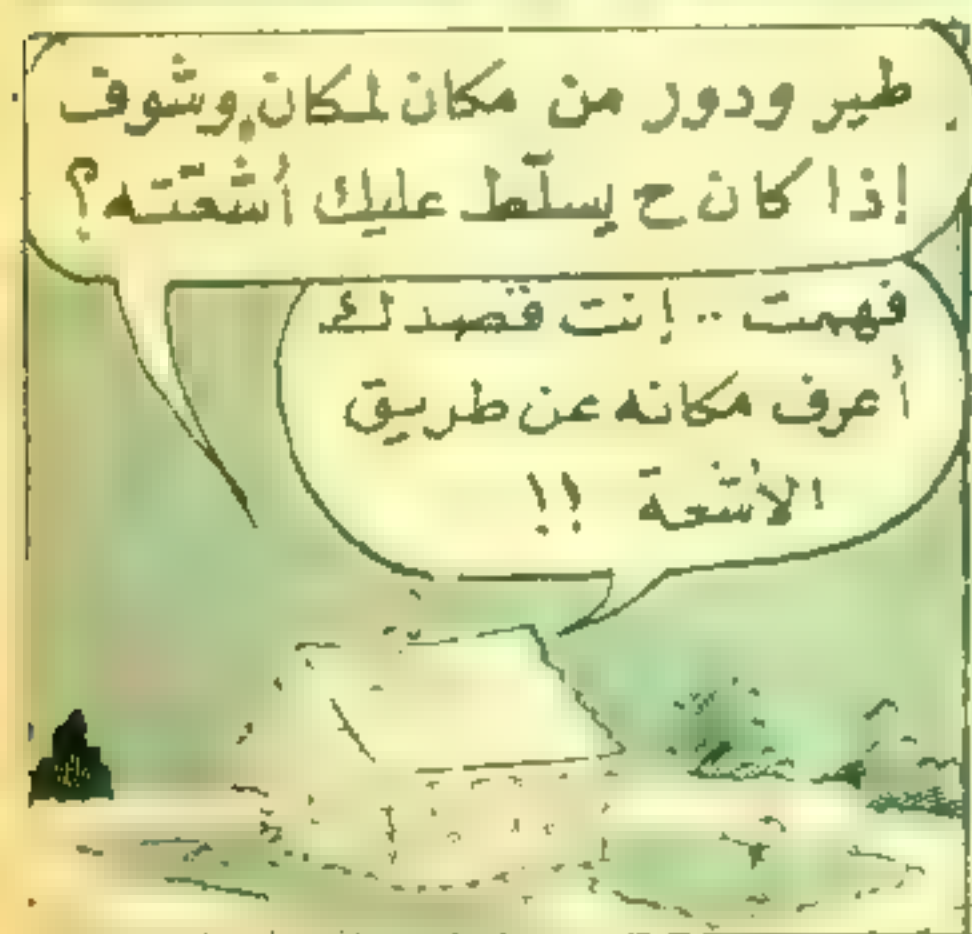 طير ودور من مكان لمكان وشوف
إذا كان ح يسلّط عليك أشعّته؟
فهمت .. إنت قصدك
أعرف مكانه عن طريق
الأشعة !!